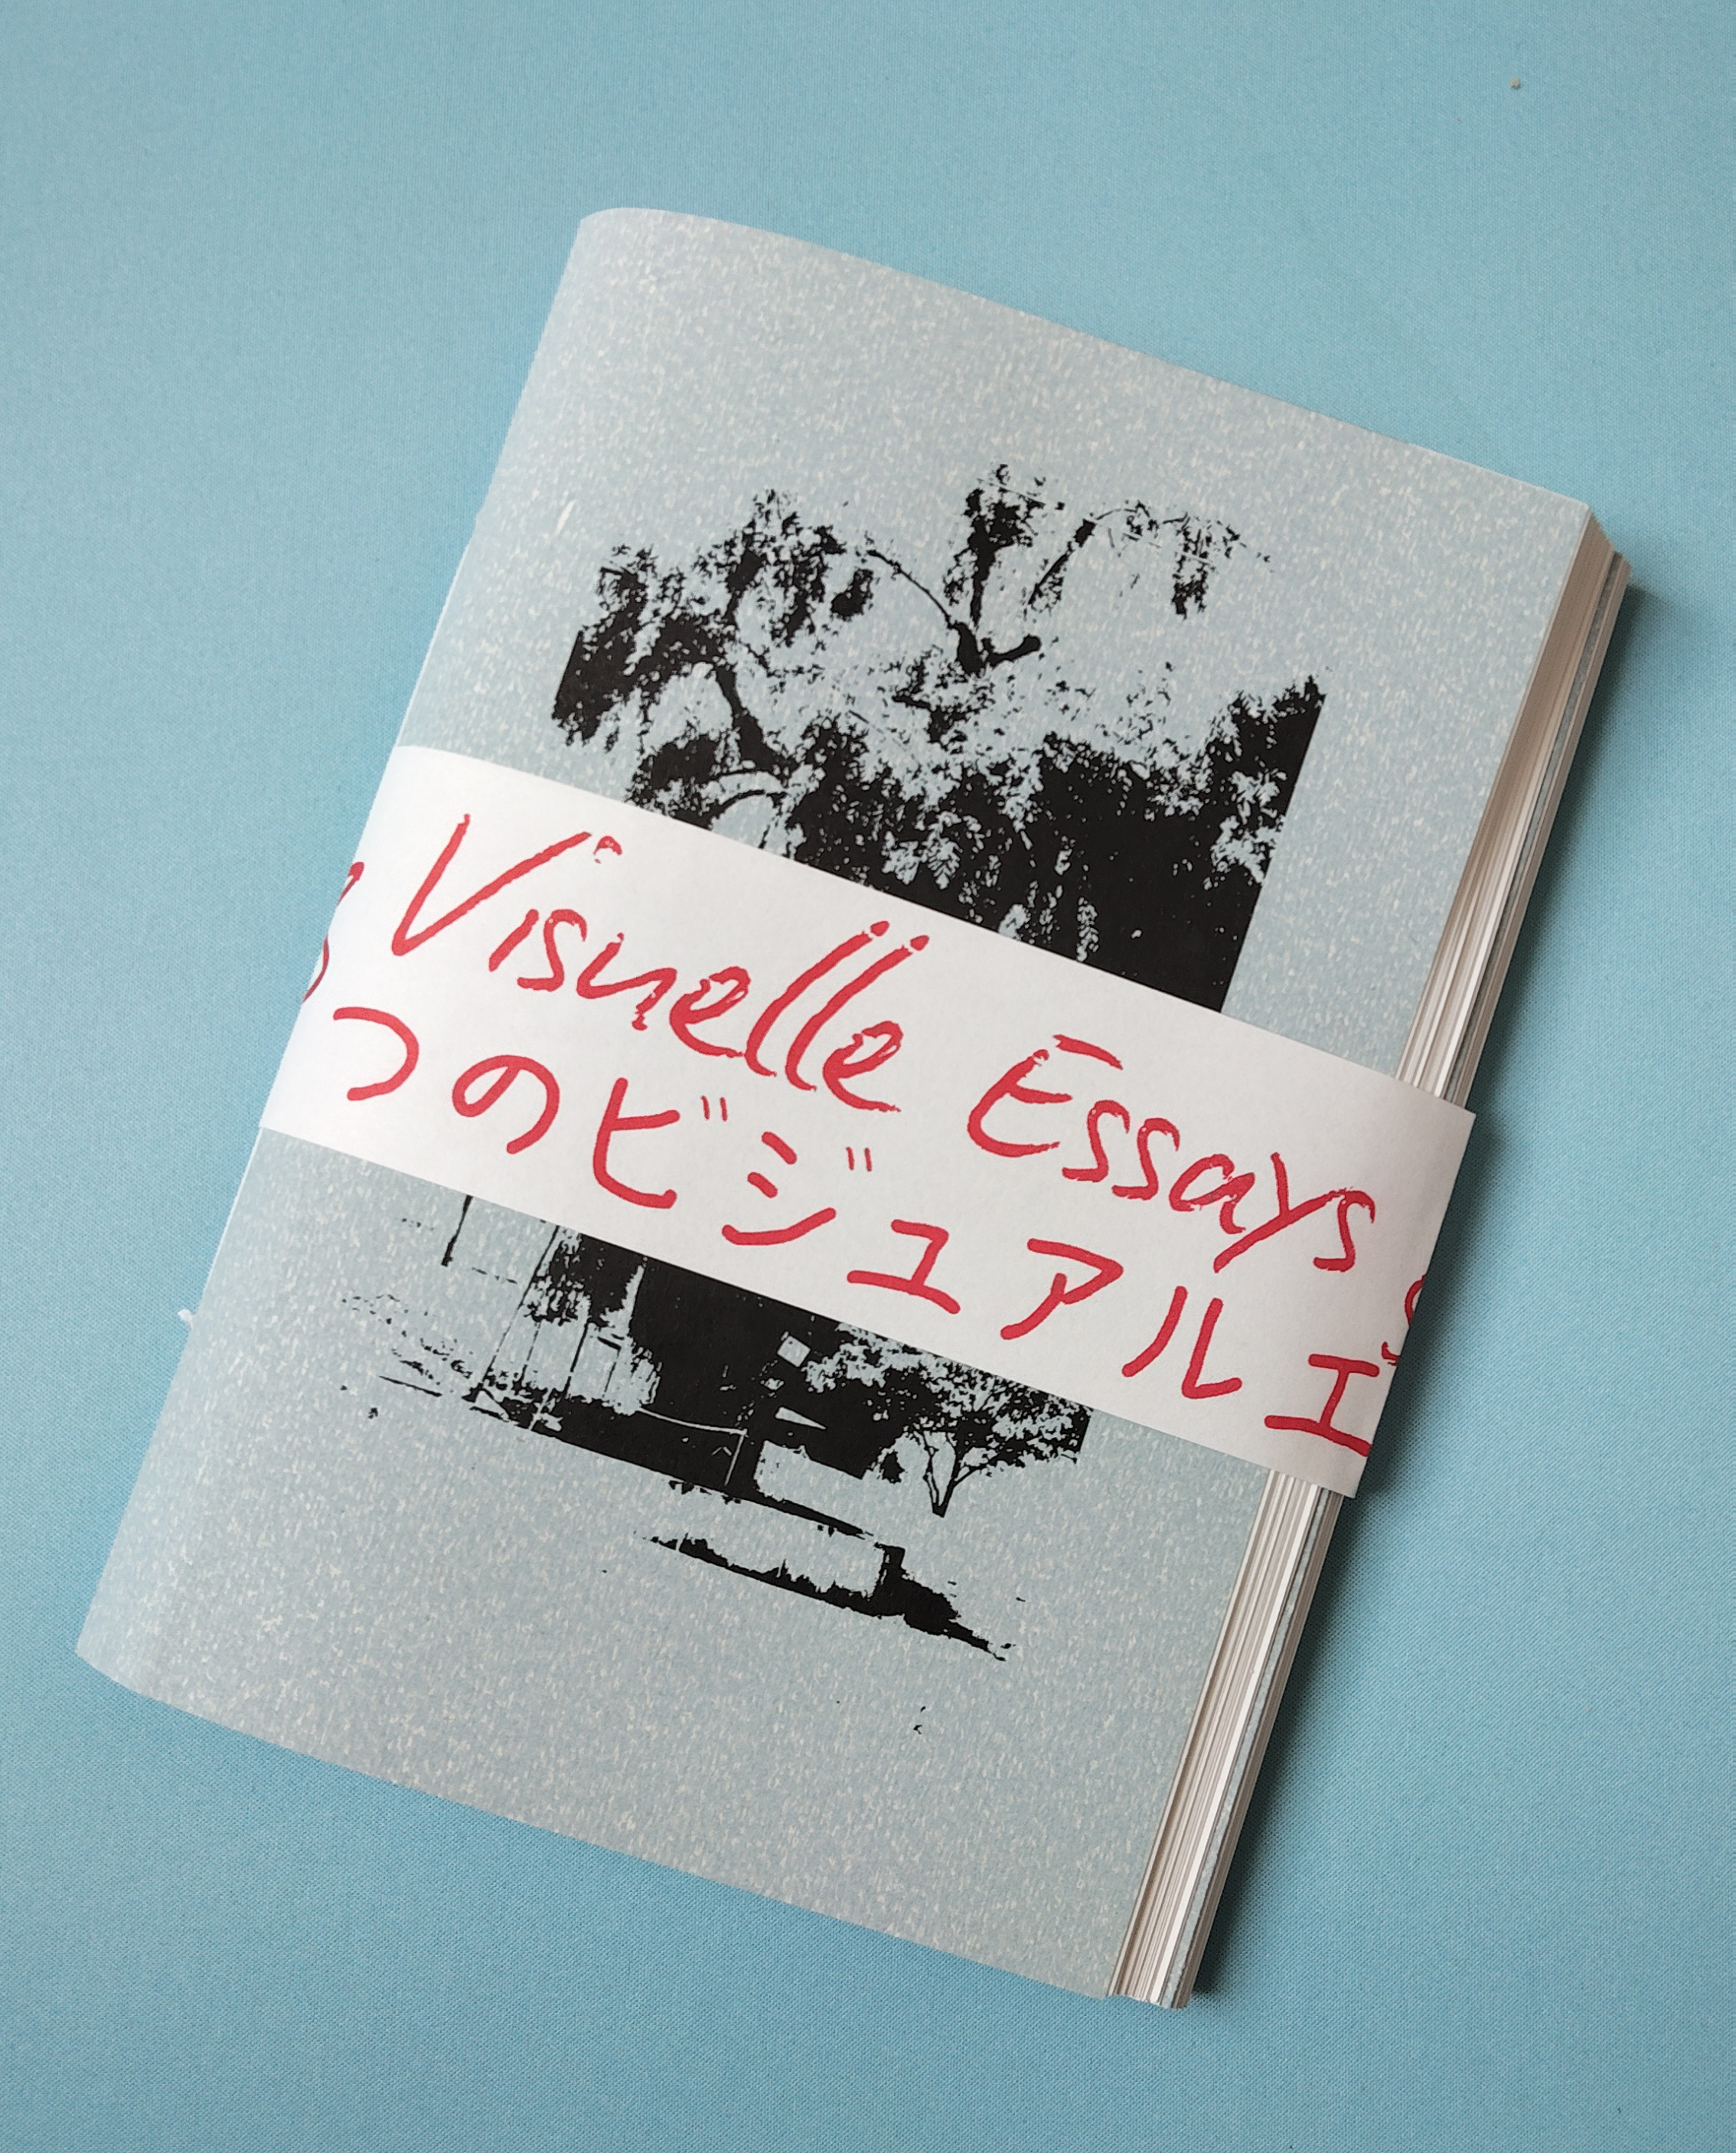 Visuelle Essays
つのビジュアルエ